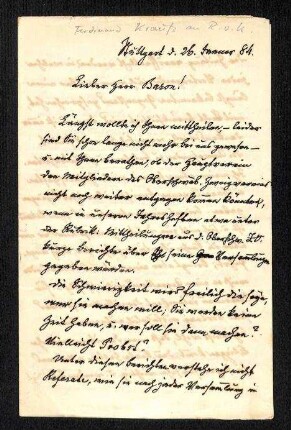 Ferdinand Krauß an R. v. K.
Stuttgart d. 26. Januar 84.
Lieber Herr Baron!
Längst wollte ich Ihnen mittheilen, – leider
sind Sie schon lange nicht mehr bei uns gewesen –
u. mit Ihnen berathen, ob der Hauptverein
den Mitgliedern des Oberschwäb. Zweigvereins
nicht noch weiter entgegen kommen könnte,
wenn in unseren Jahresheften etwa unter
der Rubrik: Mittheilungen aus d. Oberschw.
kurze Berichte über seine Versammlungen
gegeben würden.
Die Schwierigkeit wird freilich die sein,
wer sie machen will; Sie werden keine
Zeit haben, u. wer soll sie dann machen?
Vielleicht Probst?
Unter diesen Berichten verstehe ich nicht
Referate, wie sie nach jeder Versammlung in